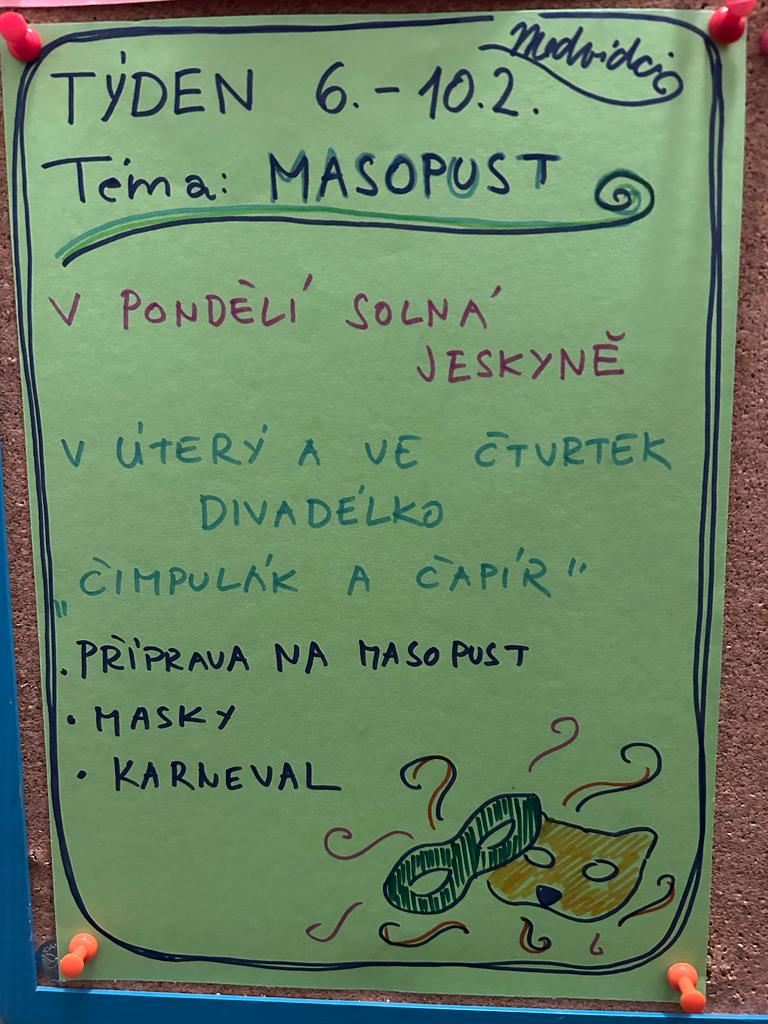 Medvídci
TÝDEN 6.-10.2.
Téma: MASOPUST
V PONDĚLÍ SOLNÁ
JESKYNĚ
V ÚTERÝ A VE ČTVRTEK
DIVADÉLKO
„ČIMPULÁK A ČAPÍR"
• PŘÍPRAVA NA MASOPUST
• MASKY
• KARNEVAL